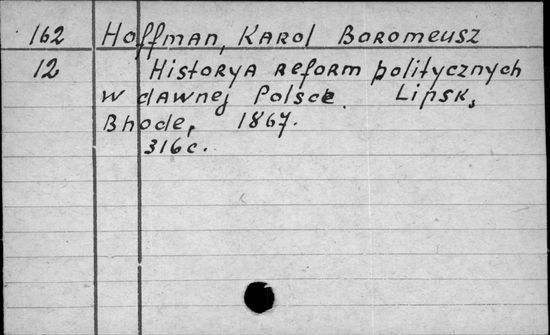 162 Hoffman, Karol Boromeusz
12 Historya reform politycznych
w dawnej Polsce. Lipsk,
Bhode, 1867.
316c.